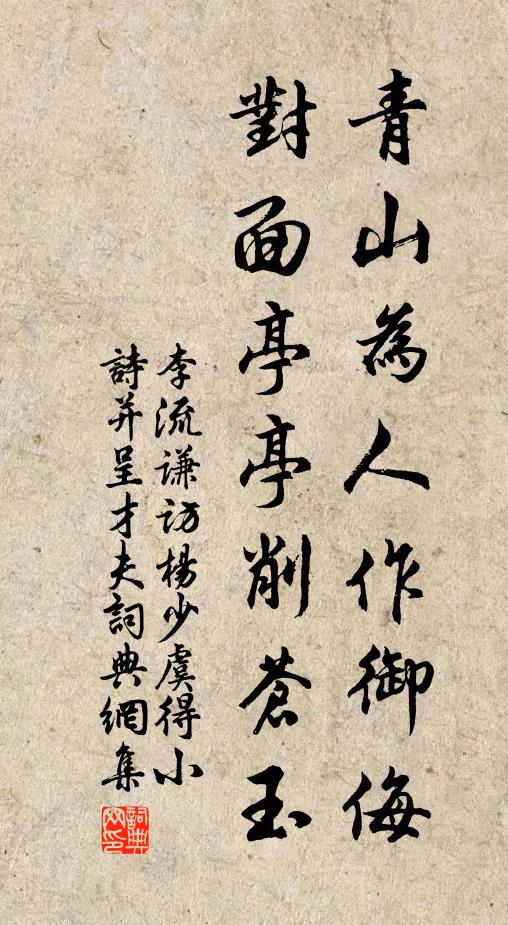 青山為人作御侮
對面亭亭削蒼玉
李流謙訪楊少虞得小
詩并呈才夫詞典網集
詞典
网印